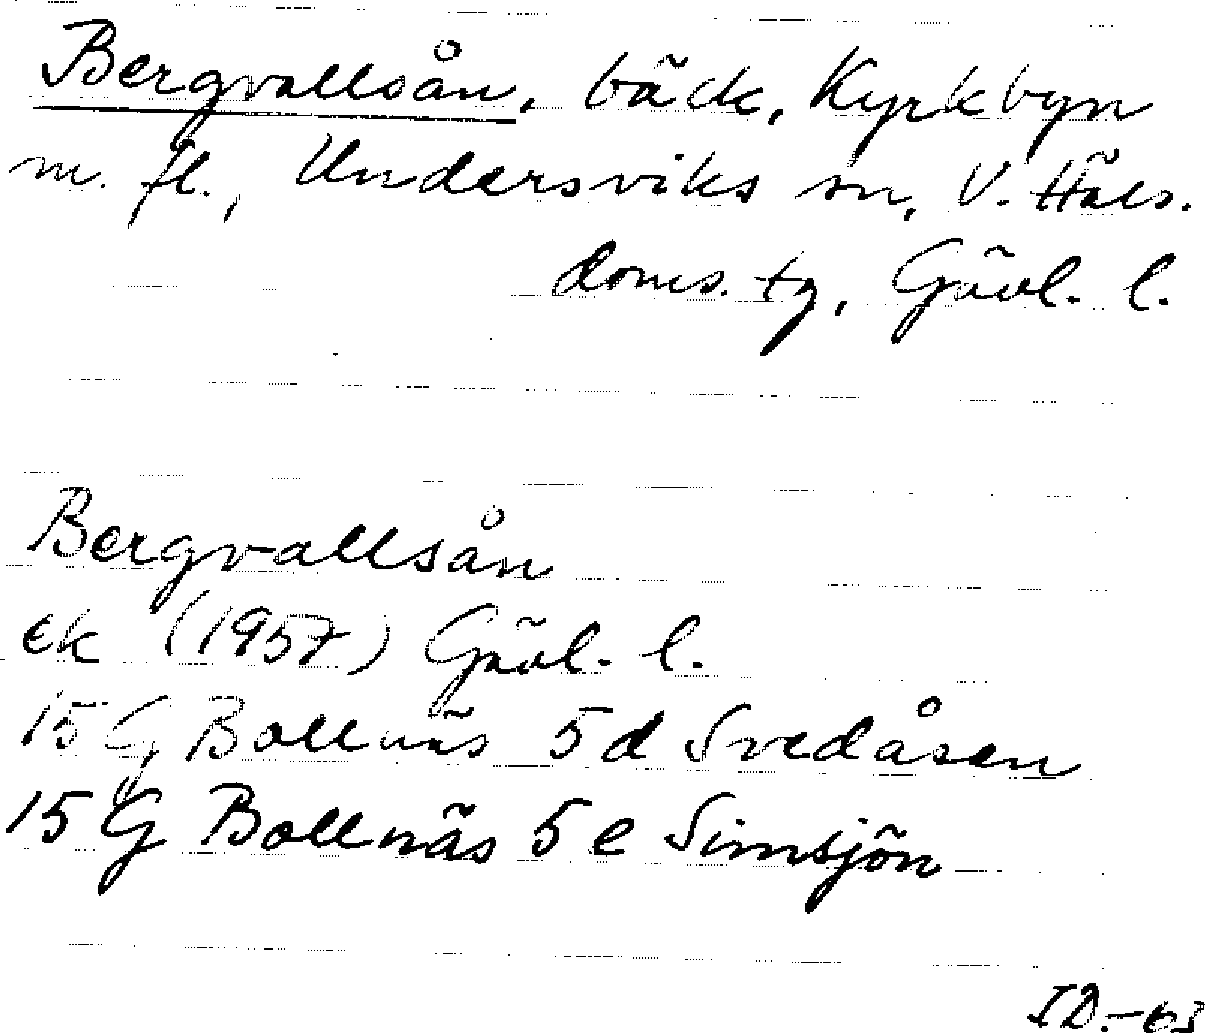 Bergvallsån, bäck, Kyrkbyn
m. fl., Undersviks sn, V. Häls.
doms. tg, Gävl. l.
Bergvallsån
ek (1957) Gävl. l.
15 G Bollnäs 5 d Svedåsen
15 G Bollnäs 5 e Simsjön
ID.-63